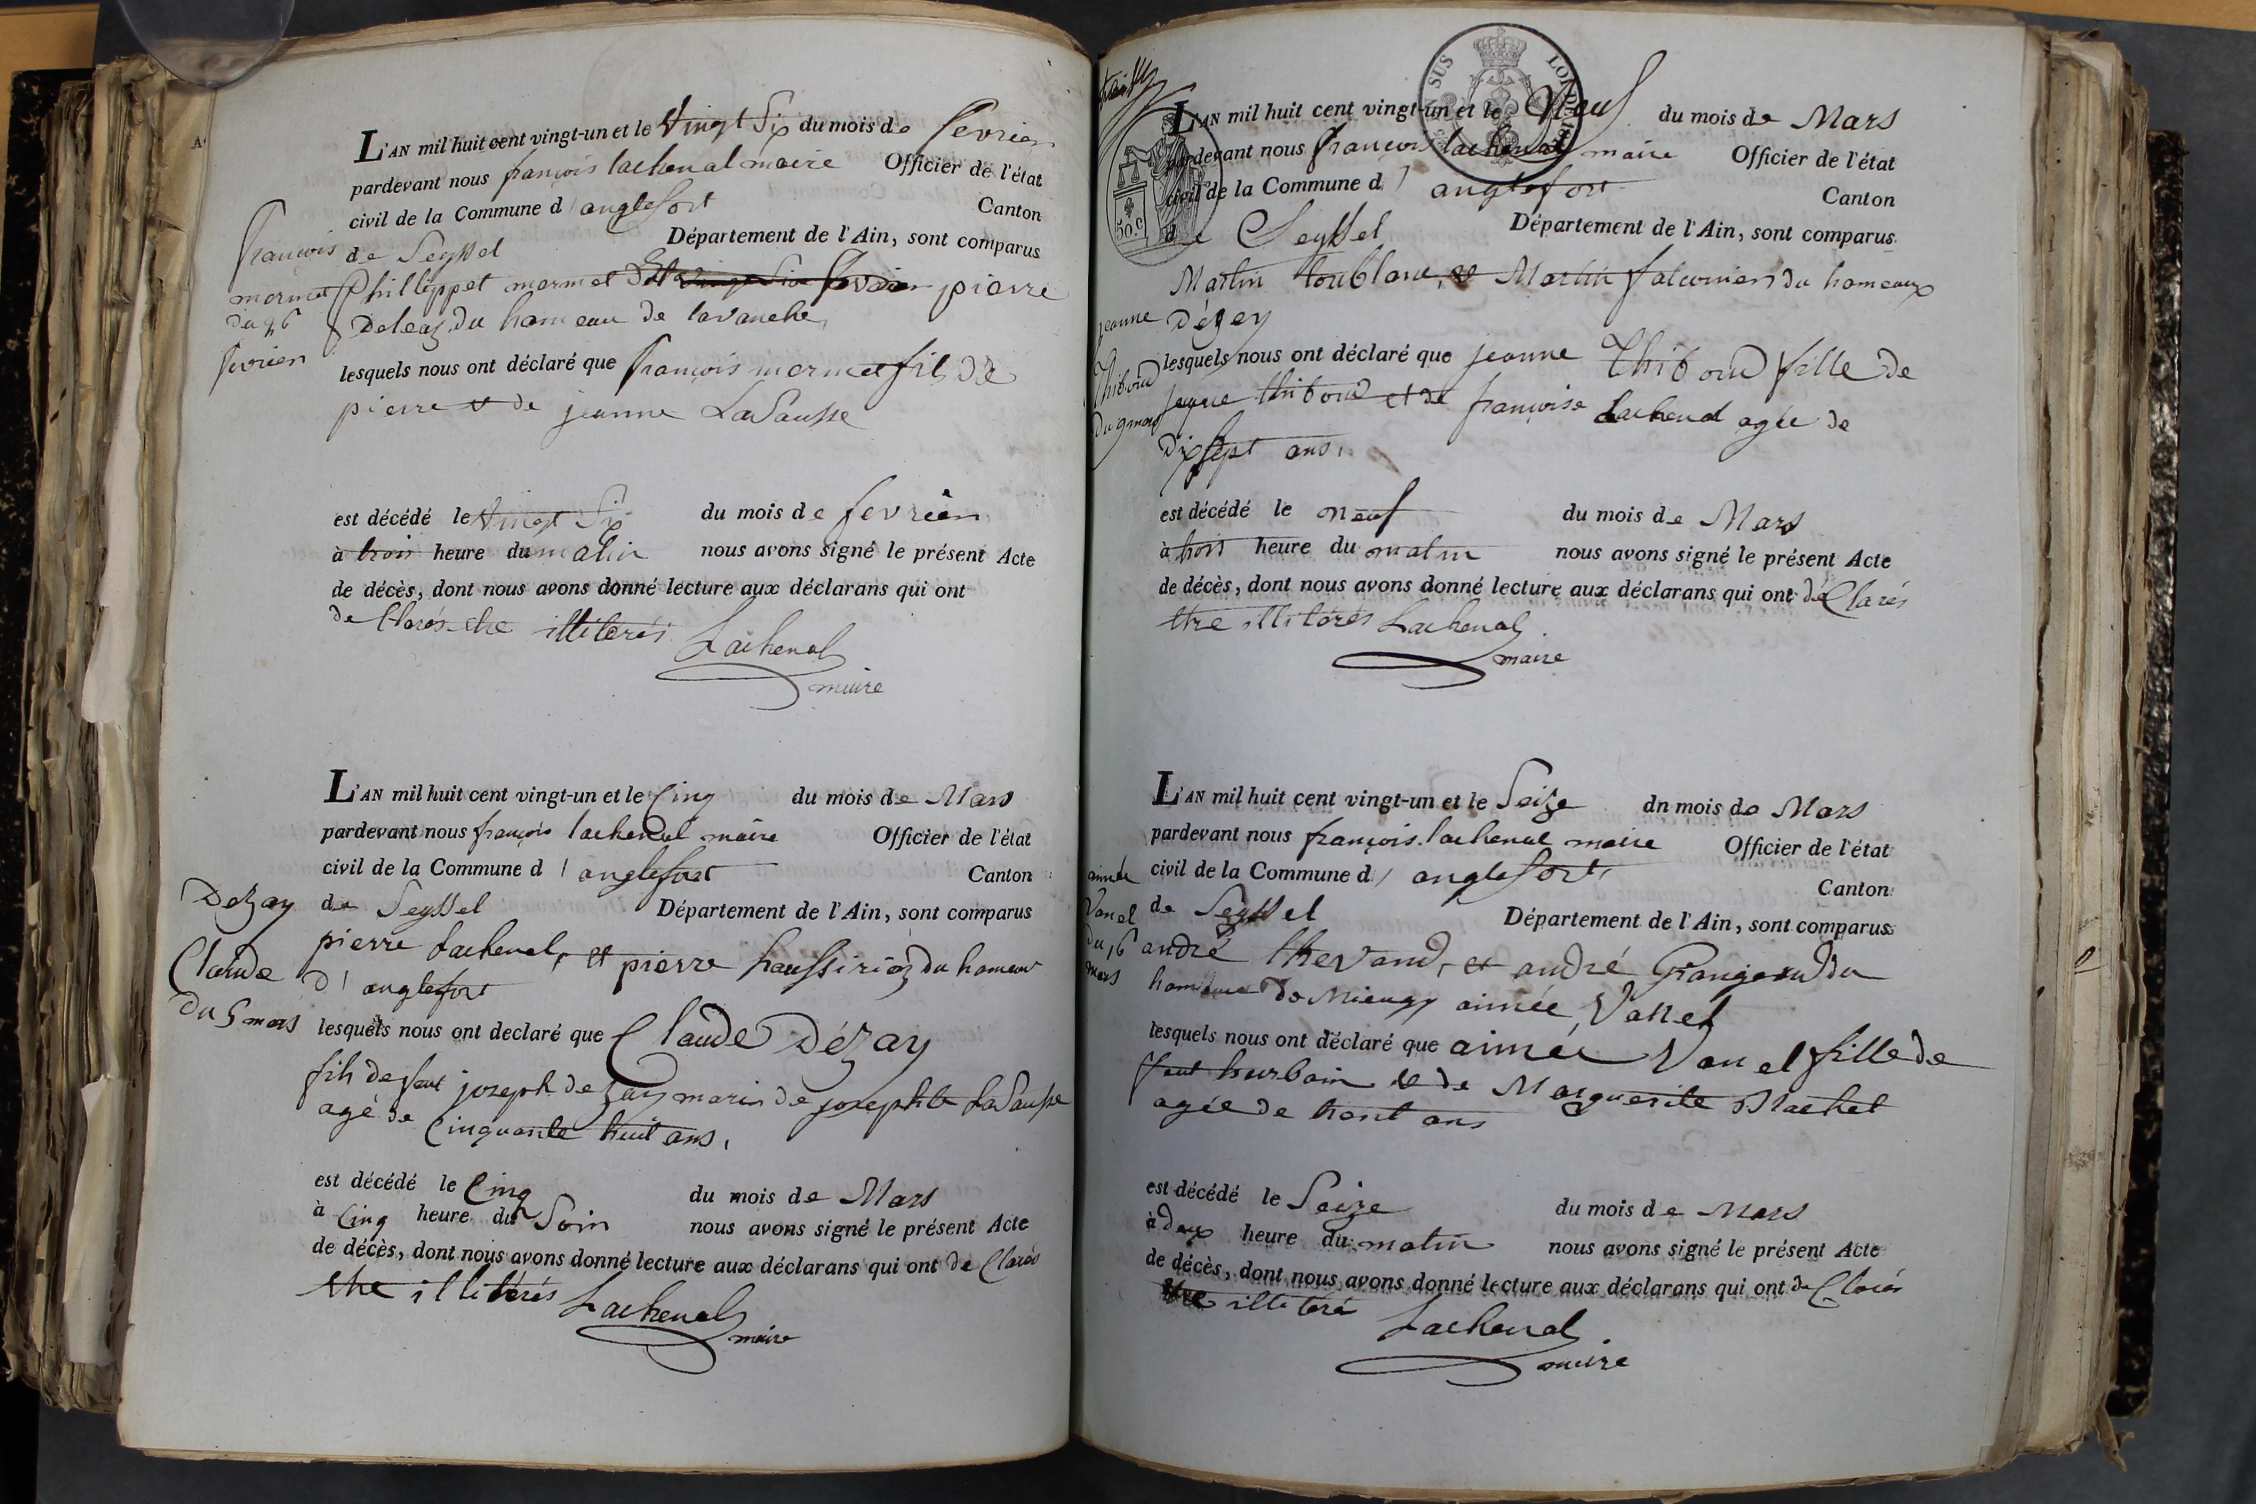 L'AN mil huit cent vingt-un et le Vingt Six du mois de fevrier
pardevant nous françois lachenal maire Officier de l'état
civil de la Commune d'anglefort Canton
de Seyssel Département de l'Ain, sont comparus
françois
mermet
du 26
fevrier
Philippet mermet pierre
du hameau de lavanche,
lesquels nous ont déclaré que françois mermet fils de
pierre et de jeanne LaSausse
est décédé le vingt Six du mois de fevrier
à trois heure du matin nous avons signé le présent Acte
de décès, dont nous avons donné lecture aux déclarans qui ont
de Clarés etre illiterés Lachenal
maire
L'AN mil huit cent vingt-un et le Cinq du mois de Mars
pardevant nous françois lachenal maire Officier de l'état
civil de la Commune d'anglefort Canton
de Seyssel Département de l'Ain, sont comparus
Dezay
Claude
du 5 mars
pierre Lachenal, et pierre du hameau
d'anglefort
lesquels nous ont declaré que Claude Dézay
fils de feut joseph dezay marie de josephte LaSausse
agé de Cinquante huit ans,
est décédé le Cinq du mois de Mars
à Cinq heure du Soir nous avons signé le présent Acte
de décès, dont nous avons donné lecture aux déclarans qui ont de Clarés
etre illitérés Lachenal
maire
SUS LOI DE
50. c
L'AN mil huit cent vingt-un et le Neuf du mois de Mars
pardevant nous françois lachenal maire Officier de l'état
civil de la Commune d'anglefort Canton
de Seyssel Département de l'Ain, sont comparus
jeanne
Thiboud
du 9 mars
Martin et Martin falconier du hameaux
Dézey
lesquels nous ont déclaré que jeanne Thiboud fille de
thiboud et de françoise Lachenal agée de
dixsept ans,
est décédé le neuf du mois de Mars
à trois heure du matin nous avons signé le présent Acte
de décès, dont nous avons donné lecture aux déclarans qui ont dé Clarés
etre illitérés Lachenal
maire
L'AN mil huit cent vingt-un et le Seize dn mois de Mars
pardevant nous françois lachenal maire Officier de l'état
civil de la Commune d'anglefort, Canton
de Seyssel Département de l'Ain, sont comparus
aimée
Vanel
du 16
mars
andré thevand, et andré du
hameau de aimée Vanel
lesquels nous ont déclaré que aimée Vanel fille de
feut hurbain et de Marguerite Blachet
agée de ans
est décédé le Seize du mois de Mars
à deux heure du matin nous avons signé le présent Acte
de décès, dont nous avons donné lecture aux déclarans qui ont de Clarés
etre illiteré Lachenal
maire